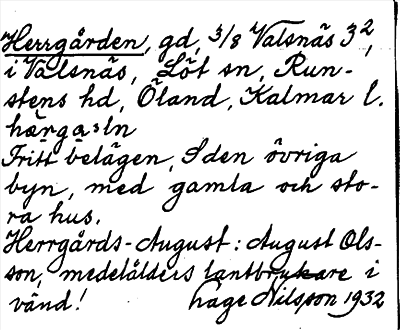 Herrgården, gd, 3/8 Valsnäs 3²,
i Valsnäs, Löt sn, Run-
stens hd, Öland, Kalmar l.
Fritt belägen, S den övriga
byn, med gamla och sto-
ra hus.
Herrgårds-August: August Ols-
son, medelålders lantbrukare i
vänd! Åage Nilsson 1932